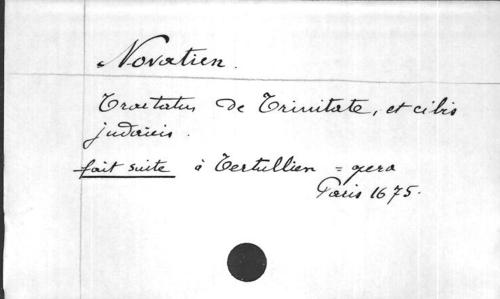 Novatien.
Tractatus de Trinitate, et cibis
judaicis.
fait suite à Tertullien = opera
Paris 1675.